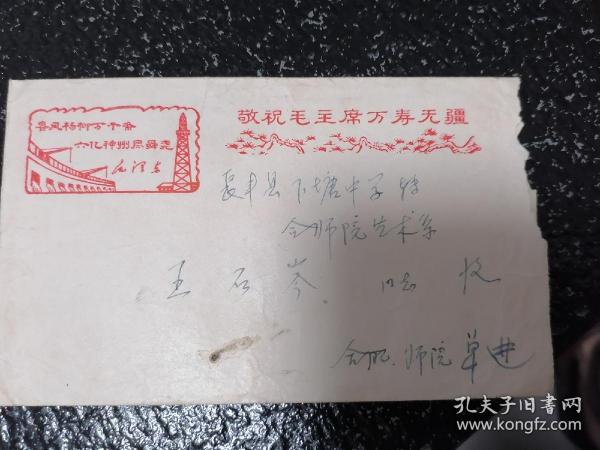 春风杨柳万千条
六亿神州尽舜尧
毛泽东
敬祝毛主席万寿无疆
长丰县下塘中学转
合师院艺术系
王石岑 同志 收
合肥.师院 单进
孔夫子旧书网
www.kongfz.com